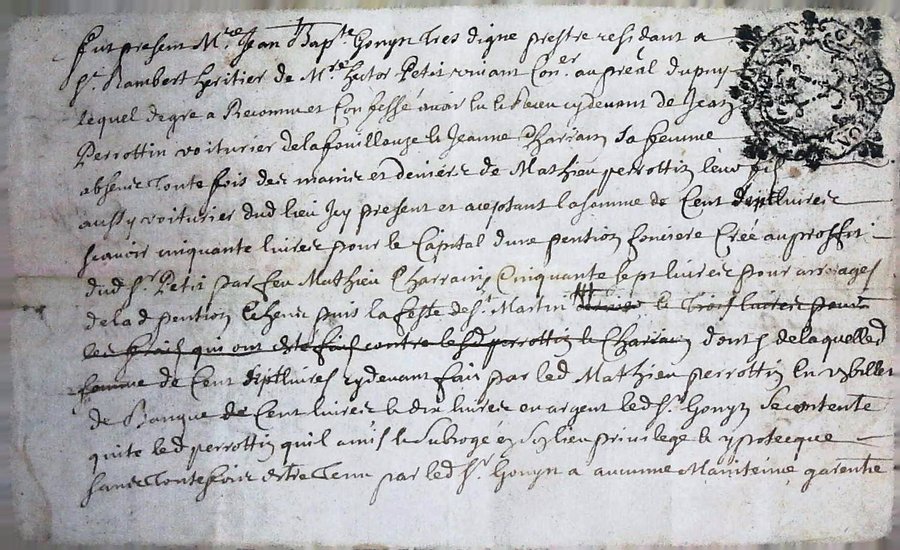 fut present Mre Jean Bapte Gonyn Tres digne prestre residant a
St Rambert heritier de Mre hector Petit vivant Coner au preal du puy
lequel de gre a Reconnu et Confessé avoir hu & Receu cydevant de Jean
Perrottin voiturier de la fouillouze & Jeanne Charrain sa femme
absens Toute fois des mains et deniers de Mathieu perrottin leur fils
aussy voiturier dud lieu Icy present et aceptant la somme de Cent dixsept livres
scavoir cinquante livres pour le Capital dune pention fonciere Créé au proffit
dud Sr Petit par feu Mathieu Charrain Cinquante sept livres pour arrerages
de lad pention Echeue puis la feste de St Martin & Trois livres pour
les frais qui ont esté fais contre lesd perrottin & Charrain dont & de laquelle d
somme de Cent dixsept livres cydevant fait par led Mathieu perrottin En ung billet
de Banque de Cent livres & dix livres en argent led Sr Gonyn se contente
quite led perrottin quil a mis & subrogé en son lieu privilege & ypotecque
sans Toutefois estre Tenu par led Sr Gonyn a aucunne Mainteine garentie